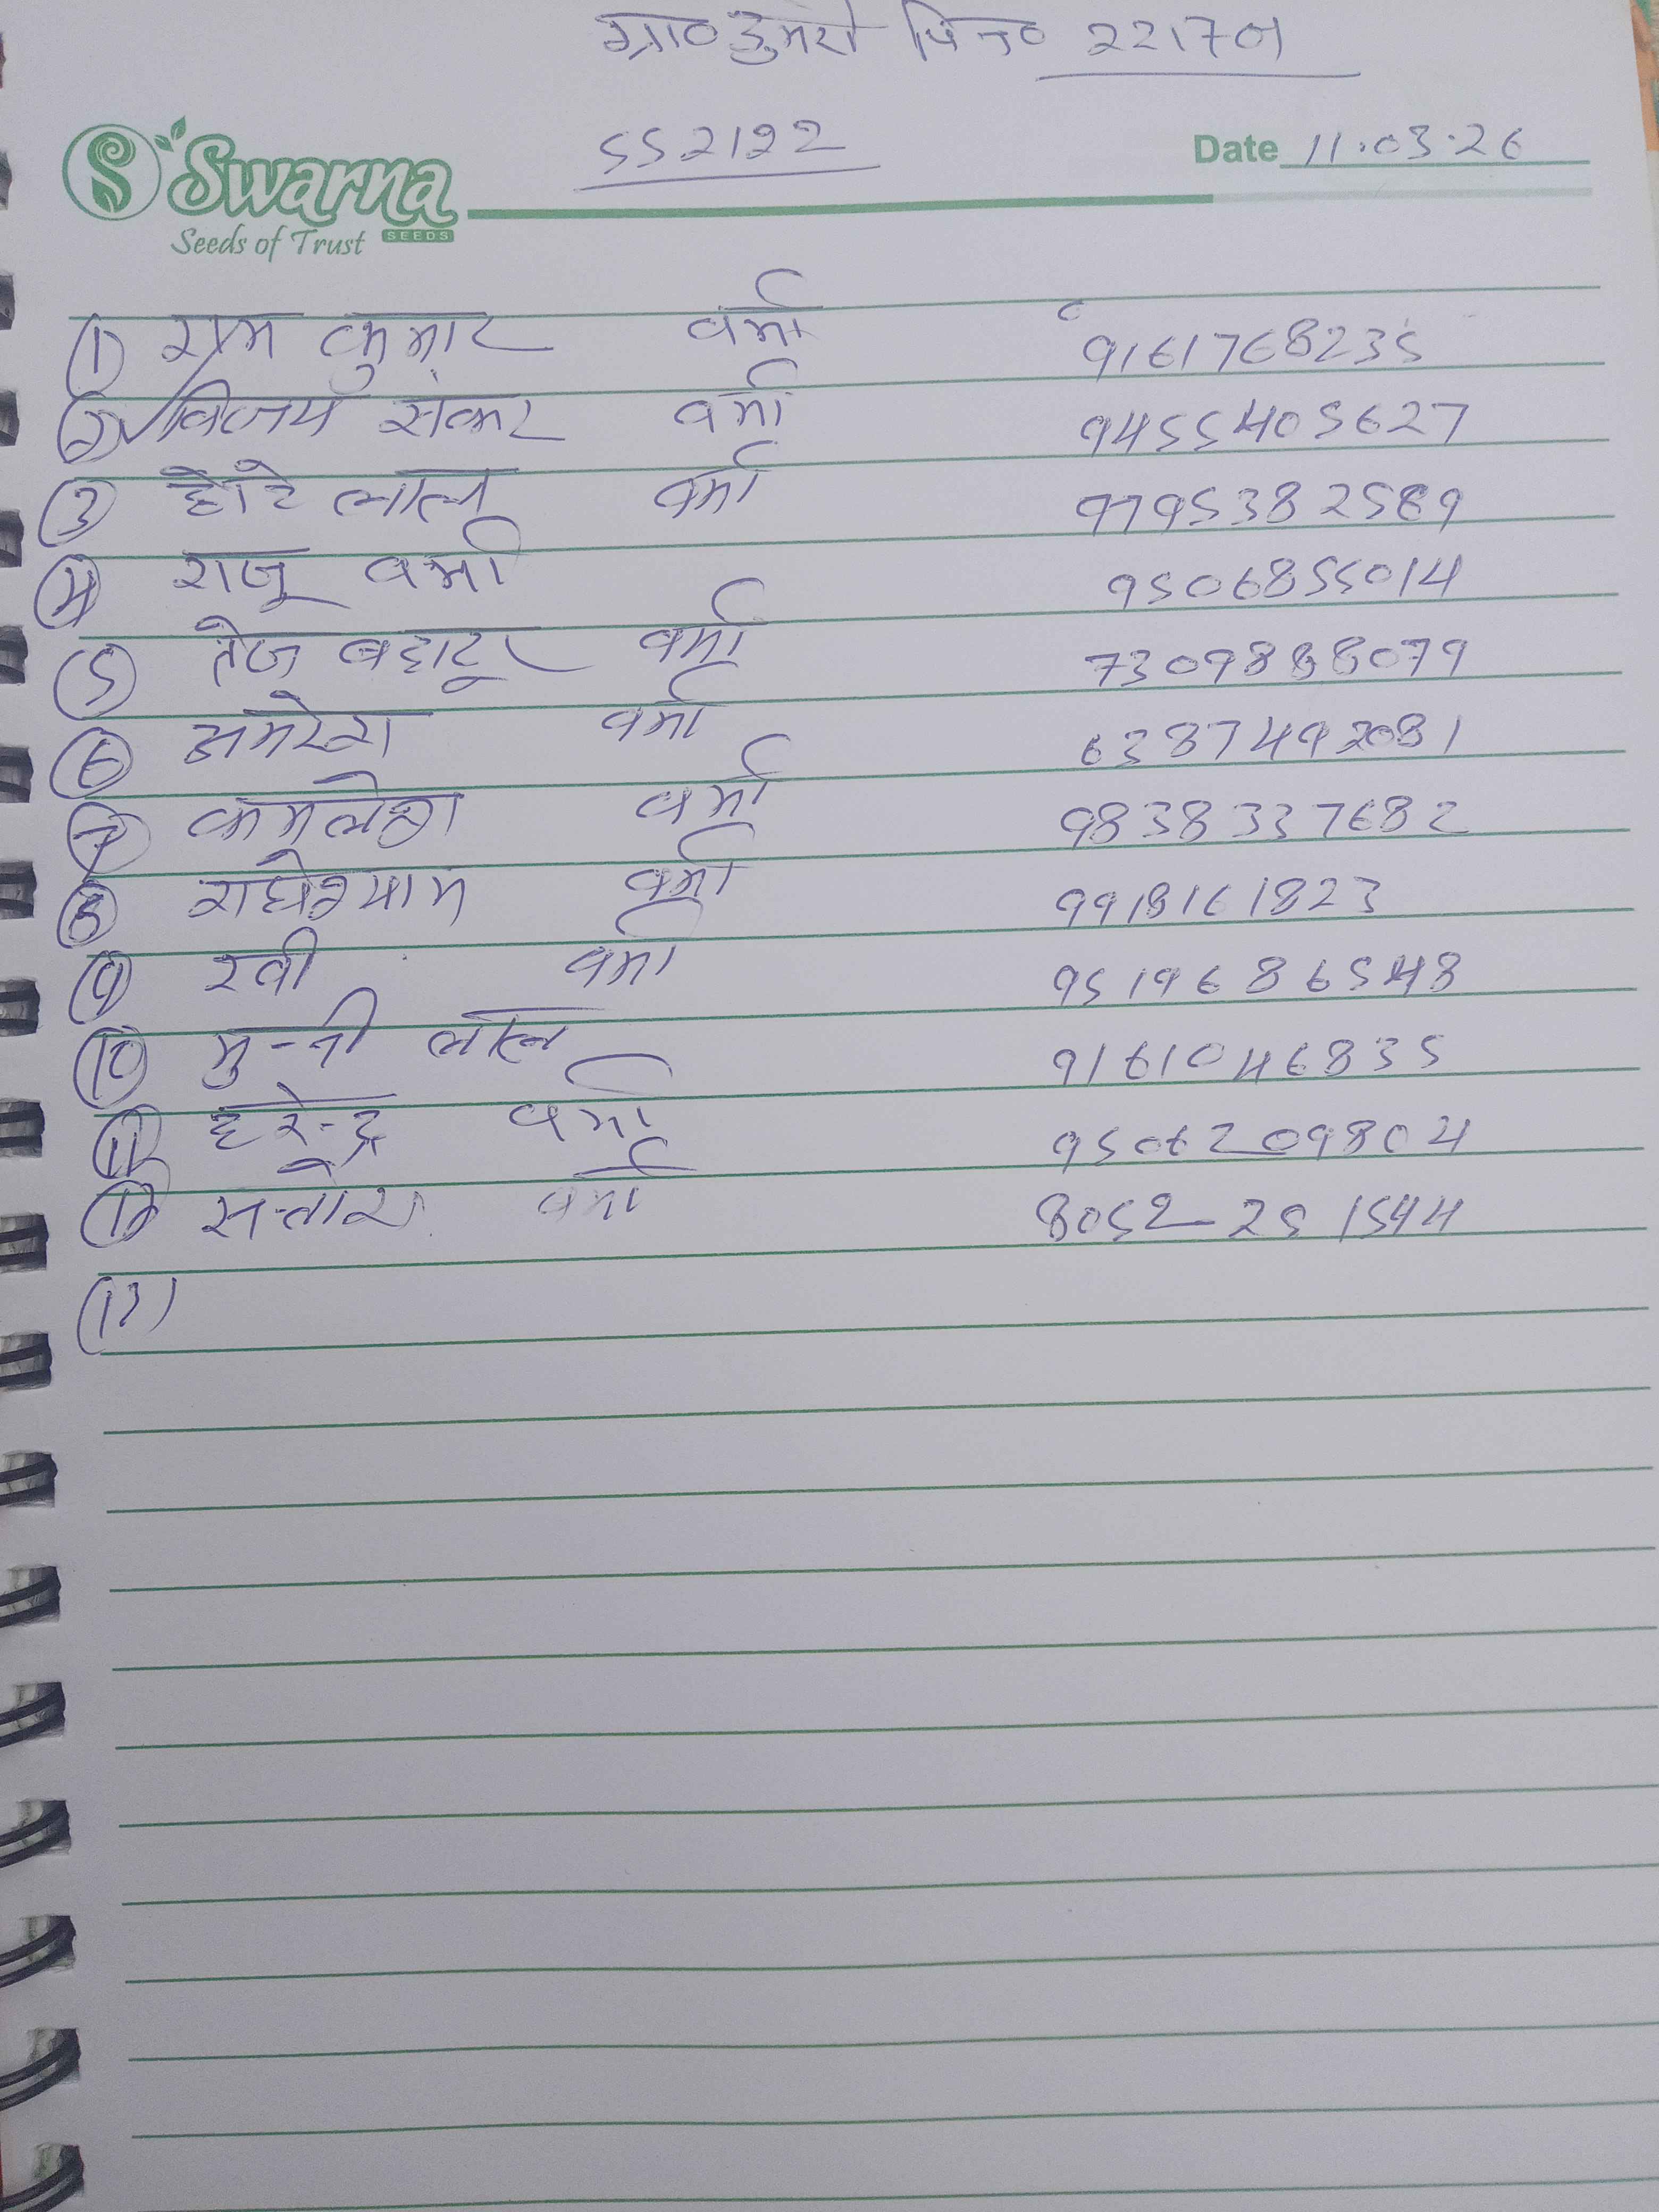 ग्रा० डुमरी पिन० 221701
SS 2122
Date 11.03.26
Swarna
SEEDS
Seeds of Trust
① राम कुमार वर्मा 9161768235
② विजय संकर वर्मा 9455405627
③ छोटे लाल वर्मा 9795382589
④ राजू वर्मा 9506855014
⑤ तेज बहादूर वर्मा 7309888079
⑥ अमरेश वर्मा 6387492081
⑦ कमलेश वर्मा 9838337682
⑧ राधेश्याम वर्मा 9918161823
⑨ रवी वर्मा 9519686548
⑩ मुन्नी लाल 9161046835
⑪ हरेन्द्र वर्मा 9506209804
⑫ सन्तोश वर्मा 8052251544
(13)